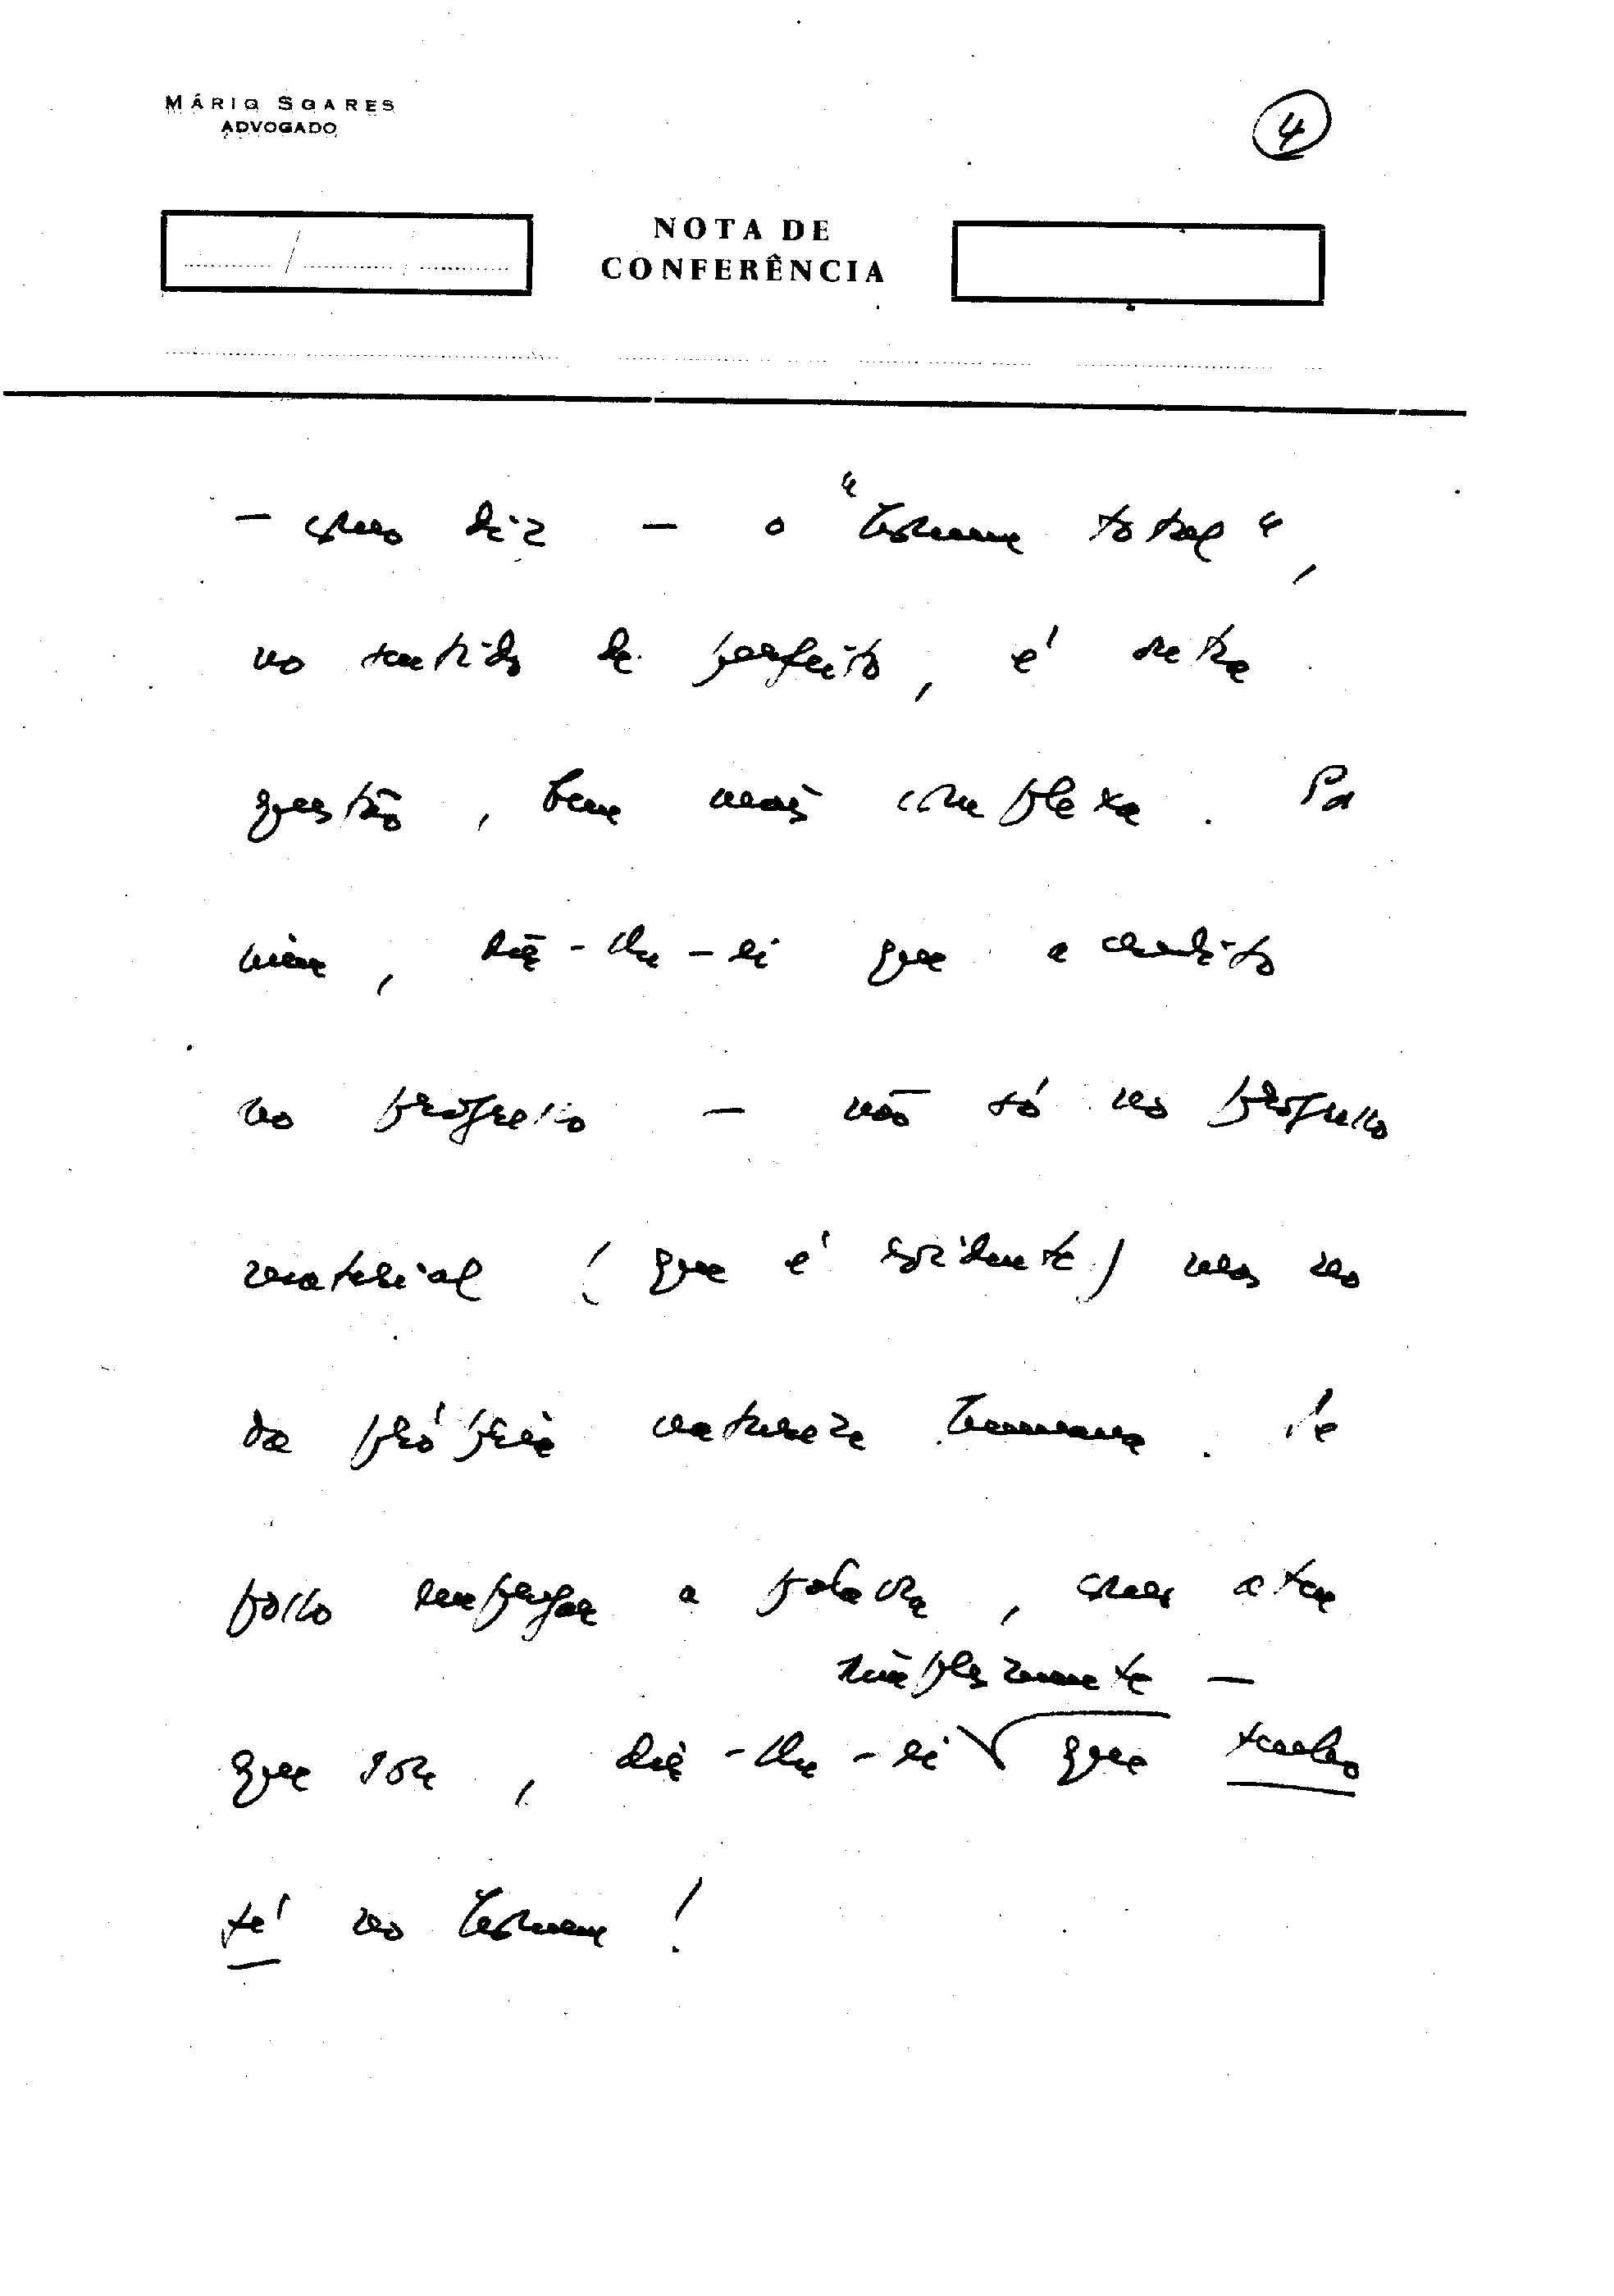 MÁRIO SOARES
ADVOGADO
4
NOTA DE
CONFERÊNCIA
— como diz — o "homem total",
no sentido de perfeito, é outra
questão, bem mais complexa. Pa
mim, dir-lhe-ei que acredito
no progresso — não só no progresso
material (que é evidente) mas no
da própria natureza humana. Se
posso empregar a palavra, com
que sou, dir-lhe-ei simplesmente — que tenho
fé no homem!